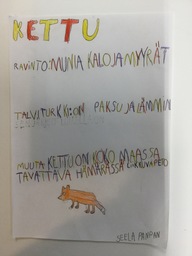 KETTU
RAVINTO:MUNIA KALOJA MYYRÄT
TALVITURKKI:ON PAKSU JA LÄMMIN
MUUTA KETTU ON KOKO MAASSA
TAVATTAVA HÄMÄRÄSSÄ LIIKKUVA PETO
SEELA